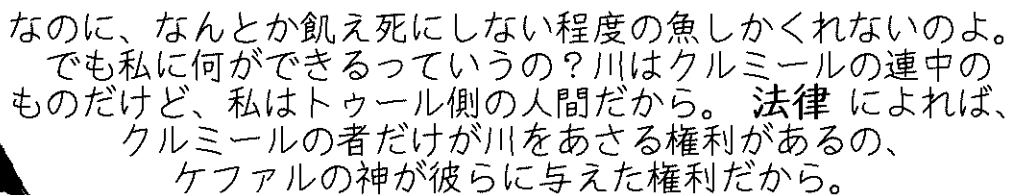 なのに、なんとか飢え死にしない程度の魚しかくれないのよ。
でも私に何ができるっていうの？川はクルミールの連中の
ものだけど、私はトゥール側の人間だから。 法律 によれば、
クルミールの者だけが川をあさる権利があるの、
ケファルの神が彼らに与えた権利だから。